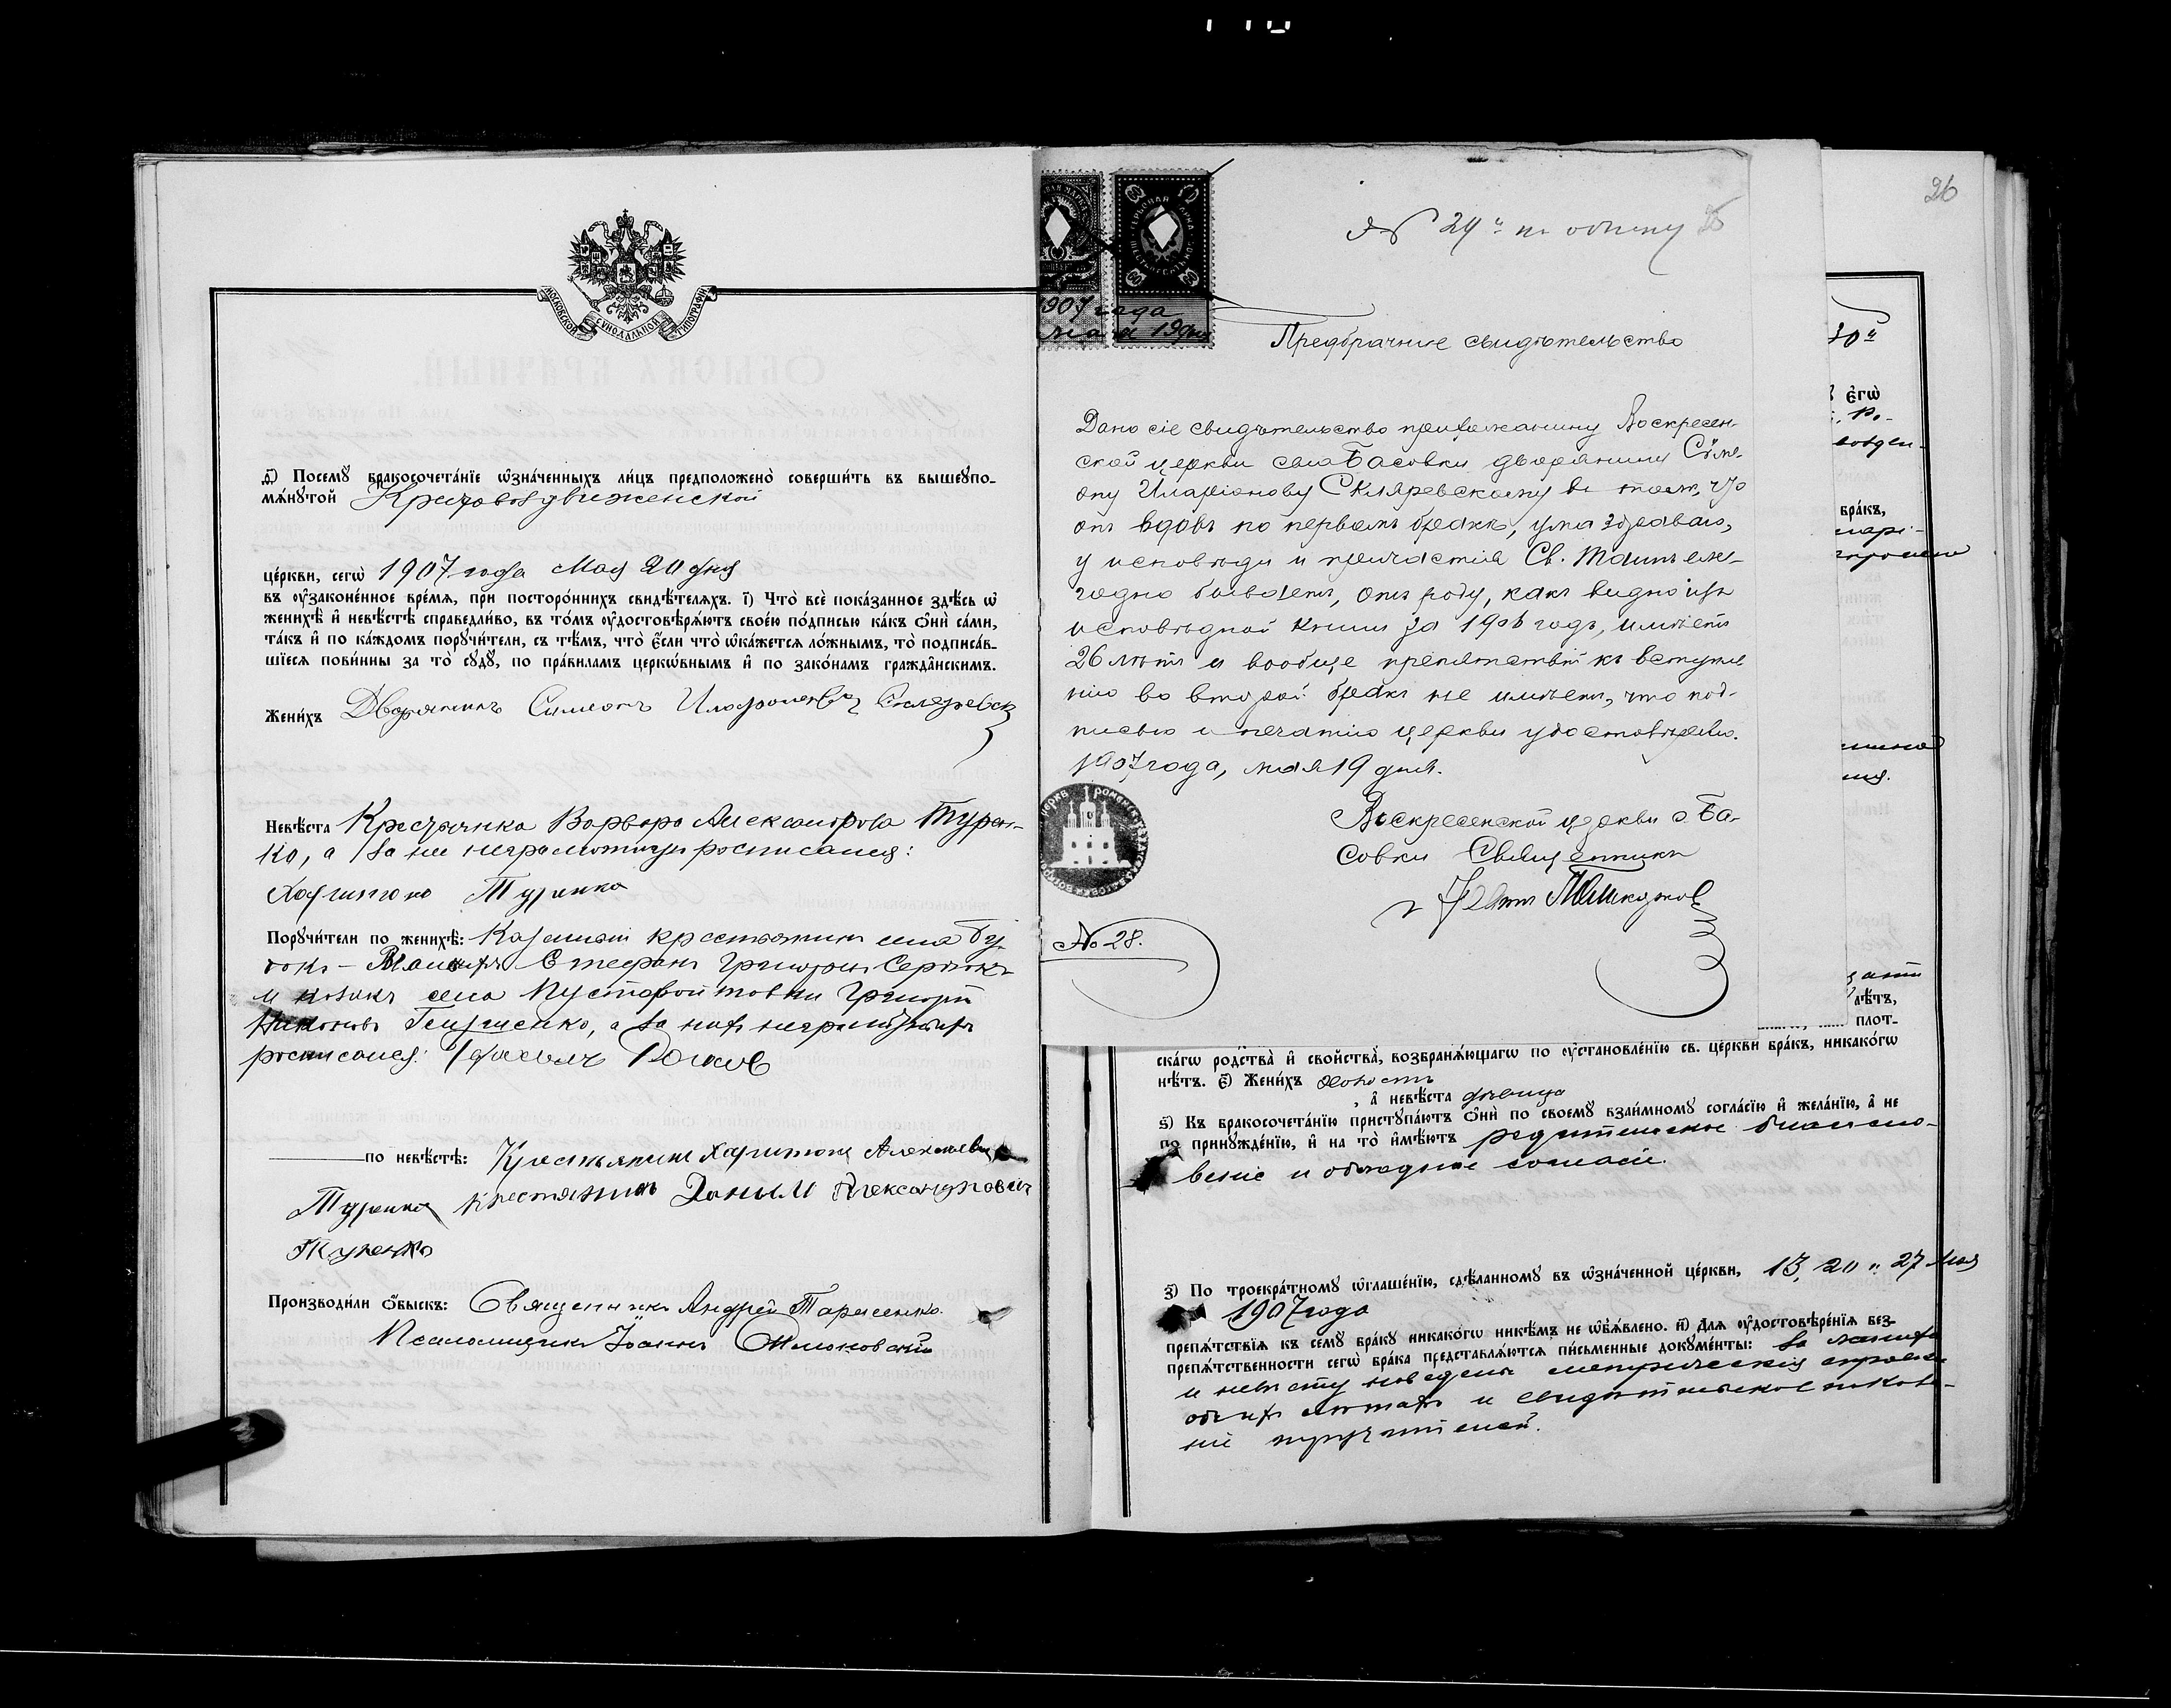 МОСКОВСКОЙ СѴНОДАЛЬНОЙ ТИПОГРАФІИ
ѳ҃) Посемꙋ бракосочета́нїе ѡ҆зна́ченныхъ ли́цъ предположено̀ соверши́ть въ вышеꙋпо-
мѧ́нꙋтой Крестовоздвиженской
це́ркви, сегѡ̀ 1907 года Мая 20 дня
въ ᲂу҆законе́нное вре́мѧ, при посторо́ннихъ свидѣ́телѧхъ. і҃) Что̀ всѐ пока́занное здѣ́сь ѡ҆
женихѣ̀ и҆ невѣ́стѣ справедли́во, въ то́мъ ᲂу҆достовѣрѧ́ютъ свое́ю по́дписью ка́къ ѻ҆нѝ са́ми,
та́къ и҆ по ка́ждомъ порꙋчи́тели, съ тѣ́мъ, что̀ є҆́сли что̀ ѡ҆ка́жетсѧ ло́жнымъ, то̀ подписа́в-
шїесѧ пови́нны за то̀ сꙋдꙋ̀, по пра́виламъ церкѡ́внымъ и҆ по зако́намъ гражда̂нскимъ.
Жени́хъ Дворянинъ Симеонъ Иларіоновъ Скляревскій
Невѣ́ста Крестьянка Варвара Александрова Турен-
ко, а за не неграмотную росписался:
Харитонъ Туренко
Порꙋчи́тели по женихѣ̀: крестьянинъ села
Стефанъ Григорьевъ
и козакъ села Пустовойтовки Григорій
а за нихъ неграмотныхъ
росписался:
по невѣ́стѣ: Крестьянинъ Харитонъ Алексѣевъ
Туренко крестянинъ Данıилъ Александровъ
Туренко
Производи́ли ѻ҆́быскъ: Священникъ Андрей Тарасенко.
Псаломщикъ Іоаннъ
26
№ 29й по обыску
1907 года
мая 19 дня
Предбрачное свидѣтельство
Дано сіе свидѣтельство прихожанину Воскресен-
ской церкви села Басовки дворянину Сѵме-
ону Иларіонову Скляревскому въ томъ, что
онъ вдовъ по первомъ бракѣ, ума здраваго,
у исповѣди и причастія Св. Таинъ еже-
годно бываетъ, отъ роду, какъ видно изъ
исповѣдной книги за 1906 годъ, имѣетъ
26 лѣтъ и вообще препятствій къ вступле-
нію во второй бракъ не имѣетъ, что под-
писью и печатію церкви удостовѣряю.
1907 года, мая 19 дня.
Воскресенской церкви с. Ба-
совки Священникъ
№ 28.
30й
є҆гѡ̀
бра́къ,
лѣ́тъ,
плот-
ска́гѡ родства̀ и҆ свойства̀, возбранѧ́ющагѡ по ᲂу҆становле́нїю св. це́ркви бра́къ, никако́гѡ
нѣ́тъ. є҃) Жени́хъ холостъ
, а҆ невѣ́ста дѣвица
ѕ҃) Къ бракосочета́нїю пристꙋпа́ютъ ѻ҆нѝ по своемꙋ̀ взаи́мномꙋ согла́сїю и҆ жела́нїю, а҆ не
по принꙋжде́нїю, и҆ на то̀ и҆мѣ́ютъ родительское благосло-
веніе и обоюдное согласіе.
з҃) По троекра́тномꙋ ѡ҆глаше́нїю, сдѣ́ланномꙋ въ ѡ҆зна́ченной це́ркви, 13, 20 и 27 Мая
1907 года
препѧ́тствїѧ къ семꙋ̀ бра́кꙋ никако́гѡ никѣ́мъ не ѡ҆б̾ѧ́влено. и҃) Длѧ ᲂу҆достовѣре́нїѧ без-
препѧ́тственности сегѡ̀ бра́ка представлѧ́ютсѧ пи́сьменные докꙋме́нты: за жениха
и невѣсту наведены метрическія справки
объ ихъ лѣтахъ и свидѣтельское показа-
ніе поручителей.